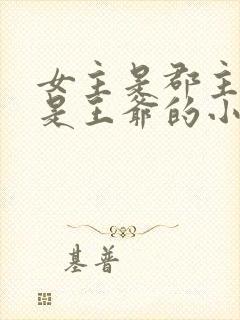 女主是郡主
是王爷的小
基普